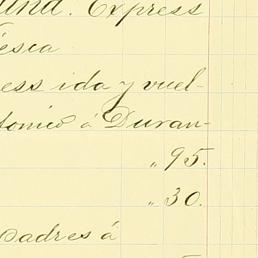 und. Express
esca
ess ida y vuel-
tonico á Duran-
„ 95.
„ 30.
padres á